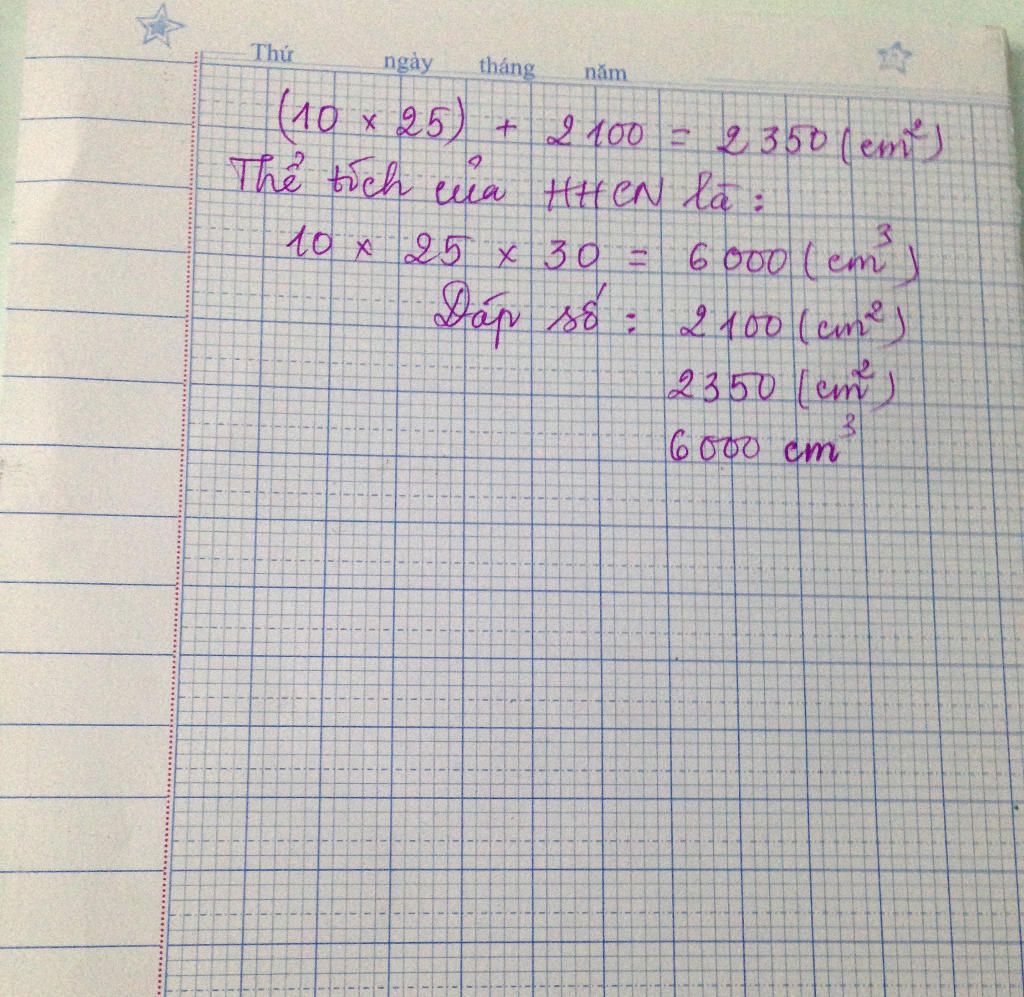 Thứ ngày tháng năm
(10 × 25) + 2100 = 2350 (cm²)
Thể tích của HHCN là :
10 × 25 × 30 = 6000 (cm³)
Đáp số : 2100 (cm²)
2350 (cm²)
6000 cm³